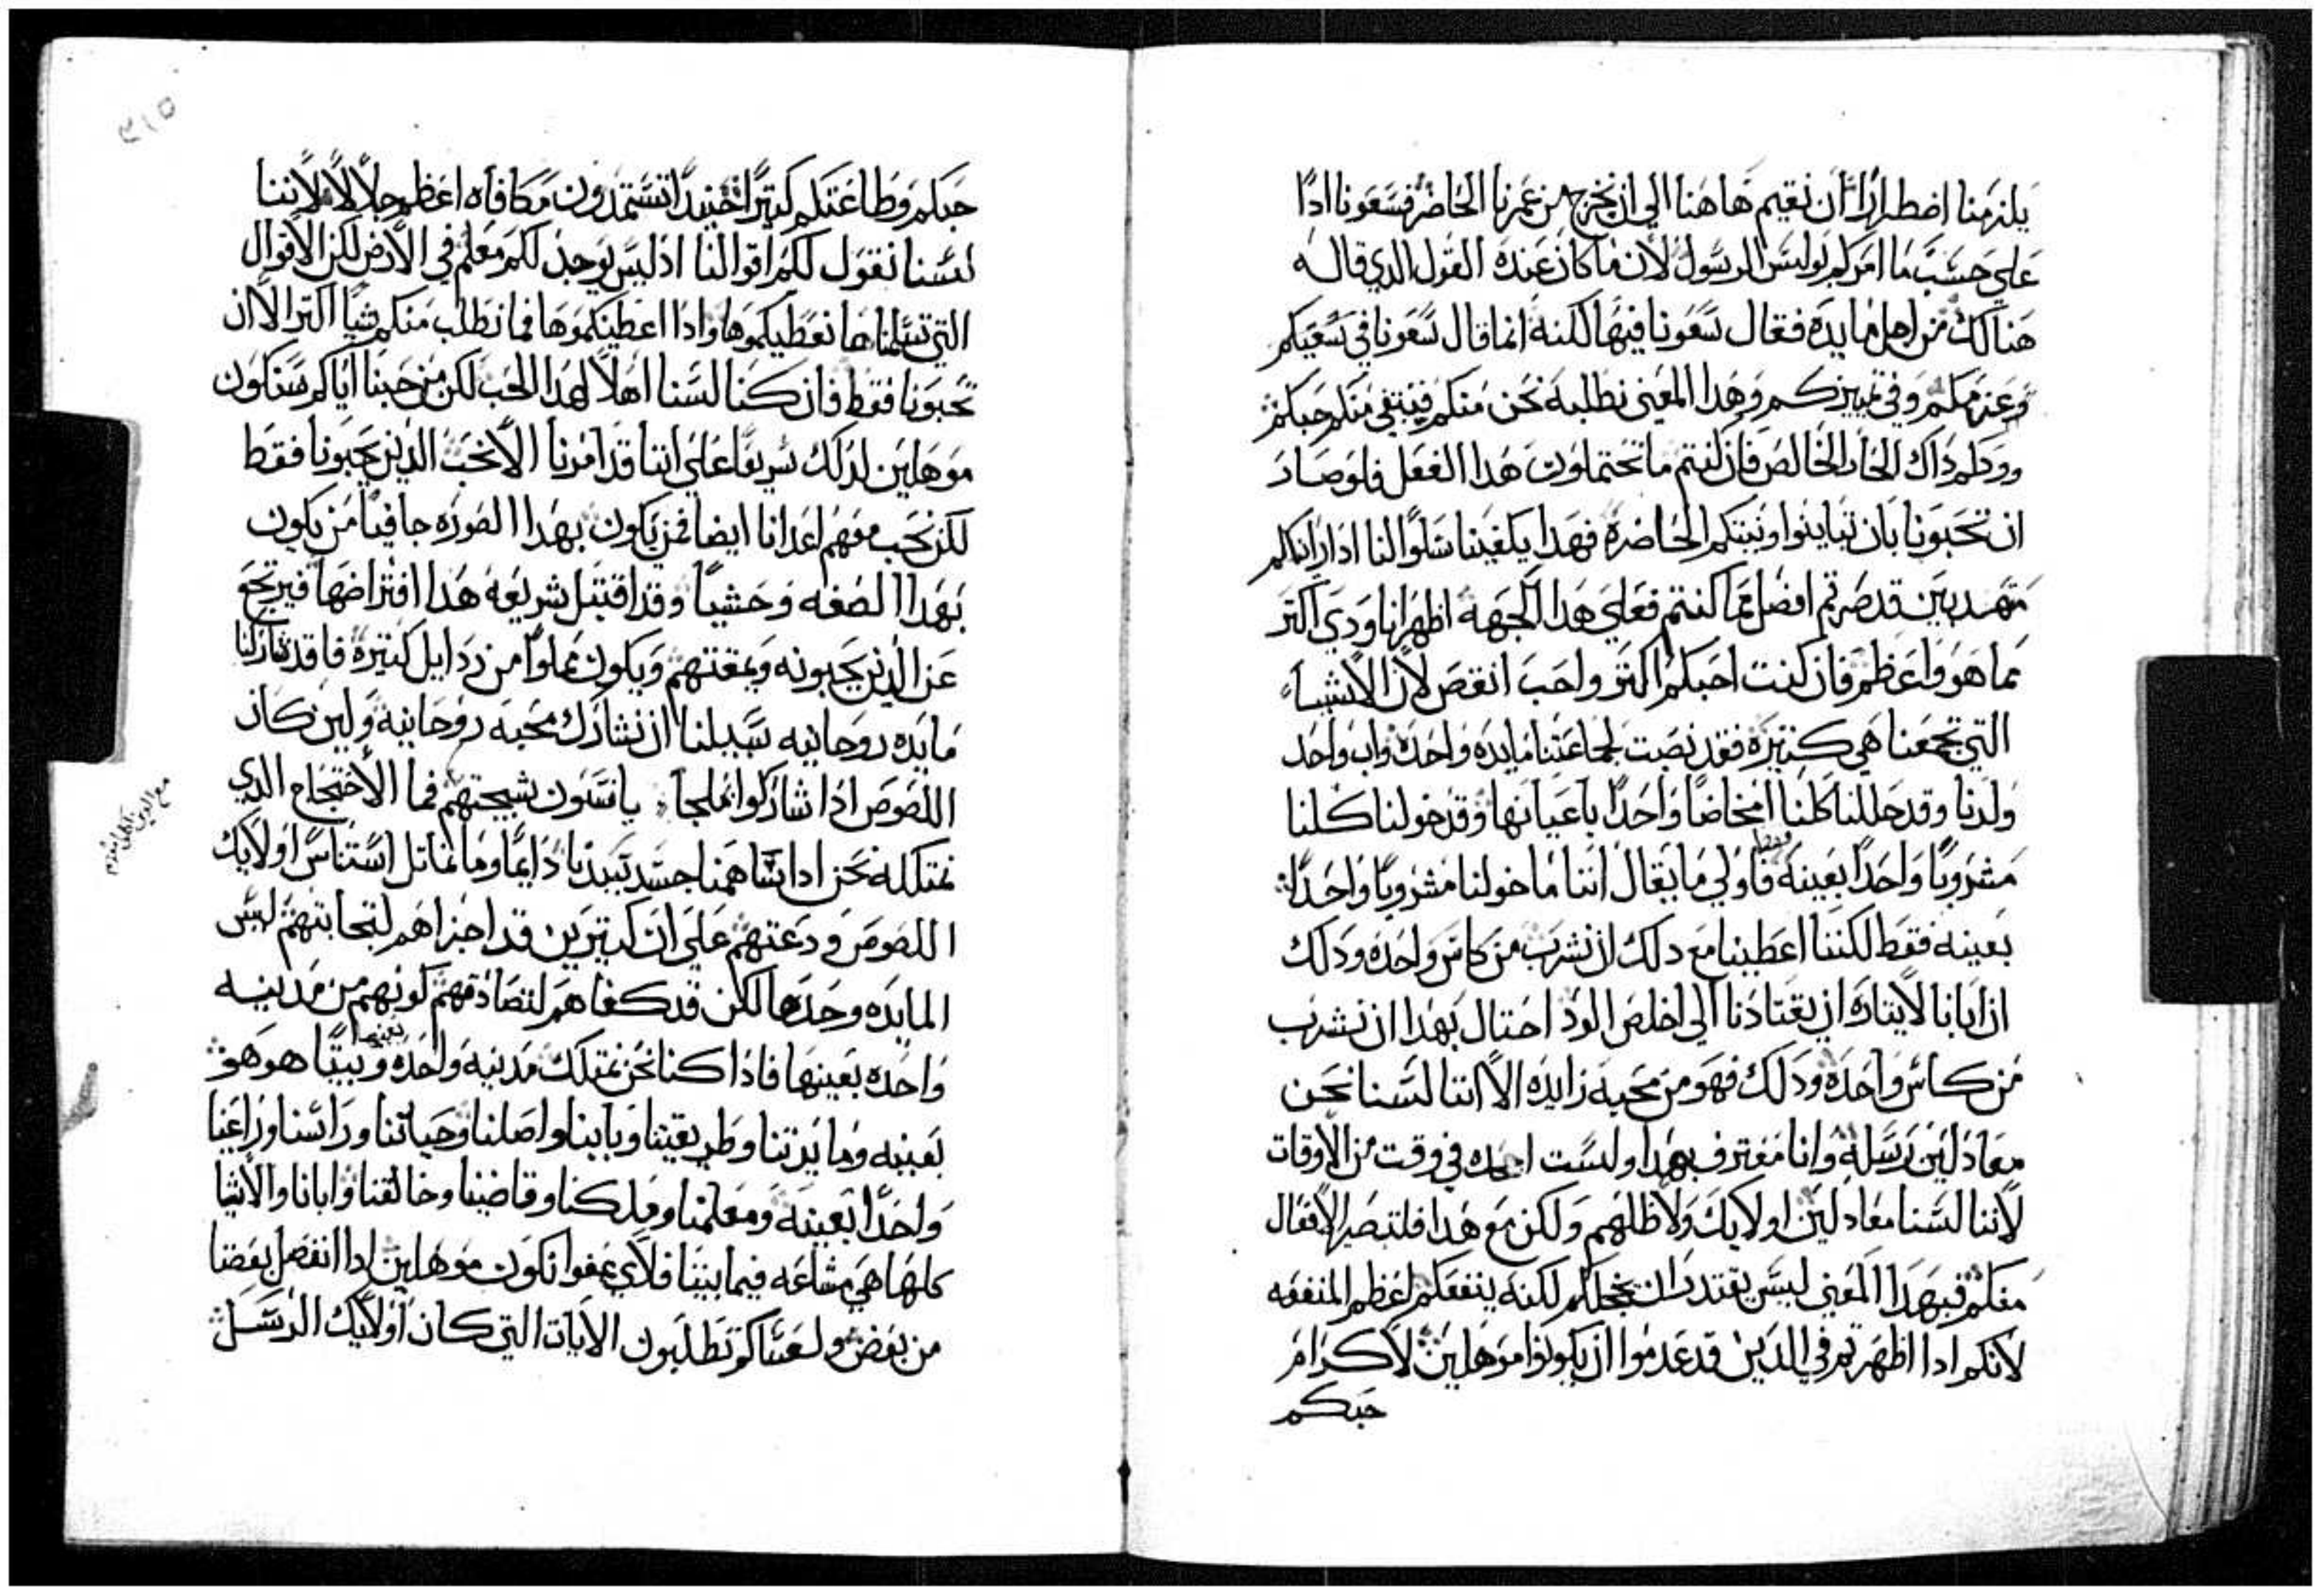 يلزمنا اضطرارًا ان نقيم هاهنا الي ان نخرج من عمرنا الحاضر فسعونا ادًا
علي حسب ما امركم بولس الرسول لان ما كان عنده القول الدي قاله
هنالك من اجل مايده فقال سعونا فيها لكنه انما قال سعونا في سعيكم
وعزمكم وفي تمييزكم وهدا المعني نطلبه نحن منكم فينبغي منكم حبكم
وودكم داك الحار الخالص فان كنتم ما تحتملون هدا الفعل فلو صار
ان تحبونا بان تباينوا ونيتكم الحاضرة فهدا يكفينا سلوًا لنا ادا رايناكم
متهدبين قد صرتم افضل مما كنتم فعلي هدا الجهه اظهر انا ودي اكتر
مما هو واعظم فان كنت احبكم اكتر واحب انقص لان الاشيآء
التي تجمعنا هي كتيرة فقد نصبت لجماعتنا مايده واحده واب واحد
ولدنا وقد حللنا كلنا امخاضًا واحدًا باعيانها وقد خولنا كلنا
مشروبًا واحدًا بعينه فاولي ما يقال اننا ما خولنا مشروبًا واحدًا
بعينه فقط لكننا اعطينا مع دلك ان نشرب من كاس واحده ودلك
ان ابانا لايتاره ان يقتادنا الي اخلص الود احتال بهدا ان نشرب
من كاس واحده ودلك فهو من محبه زايده الا اننا لسنا نحن
معادلين رسله وانا معترف بهدا ولست اجحده في وقت من الاوقات
لاننا لسنا معادلين اولايك ولا ظلهم ولكن مع هدا فلتصير الافعال
معكم فبهدا المعني ليس يقتدر ان يخجلكم لكنه ينفعكم اعظم المنفعه
لانكم ادا اظهرتم في الدين قد عدموا ان يكونوا موهلين لاكرام
حبكم
حبكم وطاعتكم كتيرًا فحينيدًا تستمدون مكافاه اعظم جلالًا لاننا
لسنا نقول لكم اقوالنا اد ليس يوجد لكم معلم في الارض لكن الاقوال
التي تسلمناها نعطيكموها وادا اعطينكموها فما نطلب منكم شيًا اكتر الا ان
تحبونا فقط فان كنا لسنا اهلًا لهدا الحب لكن من حبنا اياكم سنكون
موهلين لدلك سريعًا علي اننا قد امرنا الا نحب الدين يحبونا فقط
لكن نحب معهم اعدانا ايضا فمن يكون بهدا الصوره جافيًا من يكون
بهدا الصفه وحشيًا وقد اقتبل شريعه هدا افتراضها فيرتجع
عن الدين يحبونه ويمقتهم ويكون مملوًا من ردايل كتيرة فا قد شاركنا
مايده روحانيه سبيلنا ان نشارك محبه روحانية ولين كان
اللصوص ادا شاركوا ملحًا يانسون بشيجتهم فما الاحتجاج الدي
نمتلكه نحن ادا ساهمنا جسد سيدنا دايمًا وما نماتل استناس اولايك
اللصوص ودعتهم علي ان كتيرين قد اجزاهم لتحابتهم ليس
المايده وحدها لكن قد كفاهم لتصادقهم كونهم من مدينه
واحده بعينها فادا كنا نحن نمتلك مدينه واحده بعينها وبيتًا هو هو
بعينه ومايدتنا وطريقتنا وبابنا واصلنا وحياتنا وراسنا وراعنا
واحدًا بعينه ومعلمنا وملكنا وقاضينا وخالقنا وابانا والاشيا
كلها هي مشاعه فيما بيننا فلاي عفوا نكون موهلين ادا انفصل بعضنا
من بعض ولعساكم تطلبون الايات التي كان اولايك الرسل